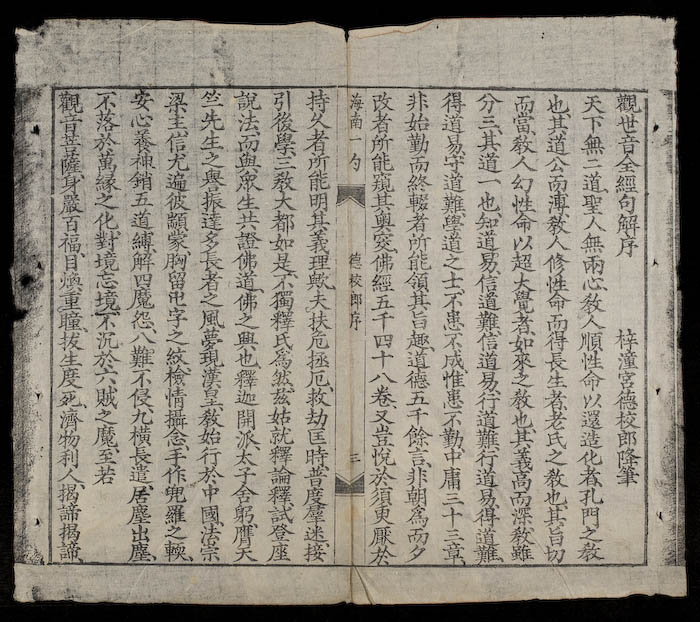 觀世音全經句解序
梓潼宮德校郎降筆
天下無二道聖人無兩心教人順性命以還造化者孔門之教
也其道公而溥教人修性命而得長生者老氏之教也其旨切
而當教人幻性命以超大覺者如來之教也其義高而深教雖
分三其道一也知道易信道難信道易行道難行道易得道難
得道易守道難學道之士不患不成惟患不勤中庸三十三章
非始勤而終輟者所能領其旨趣道德五千餘言非朝爲而夕
改者所能窺其奥窔佛經五千四十八卷又豈悅於須更厭於
海南一勺
德校郎序
三
持久者所能明其義理歟夫扶危拯厄救劫匡時普度羣迷接
引後學三教大都如是不獨釋氏爲然茲姑就釋論釋試登座
說法而與眾生共證佛道佛之興也釋迦開派太子舍躬膺天
竺先生之譽振達多長者之風夢現漢皇教始行於中國法宗
梁主信尤遍彼顓蒙胸留卍字之紋檢情攝念手作兜羅之輭
安心養神銷五道縛解四魔怨八難不侵九橫長遣居塵出塵
不落於萬緣之化對境忘境不沉於六賊之魔至若
觀音菩薩身嚴百福目煥重瞳拔生度死濟物利人揭諦揭諦